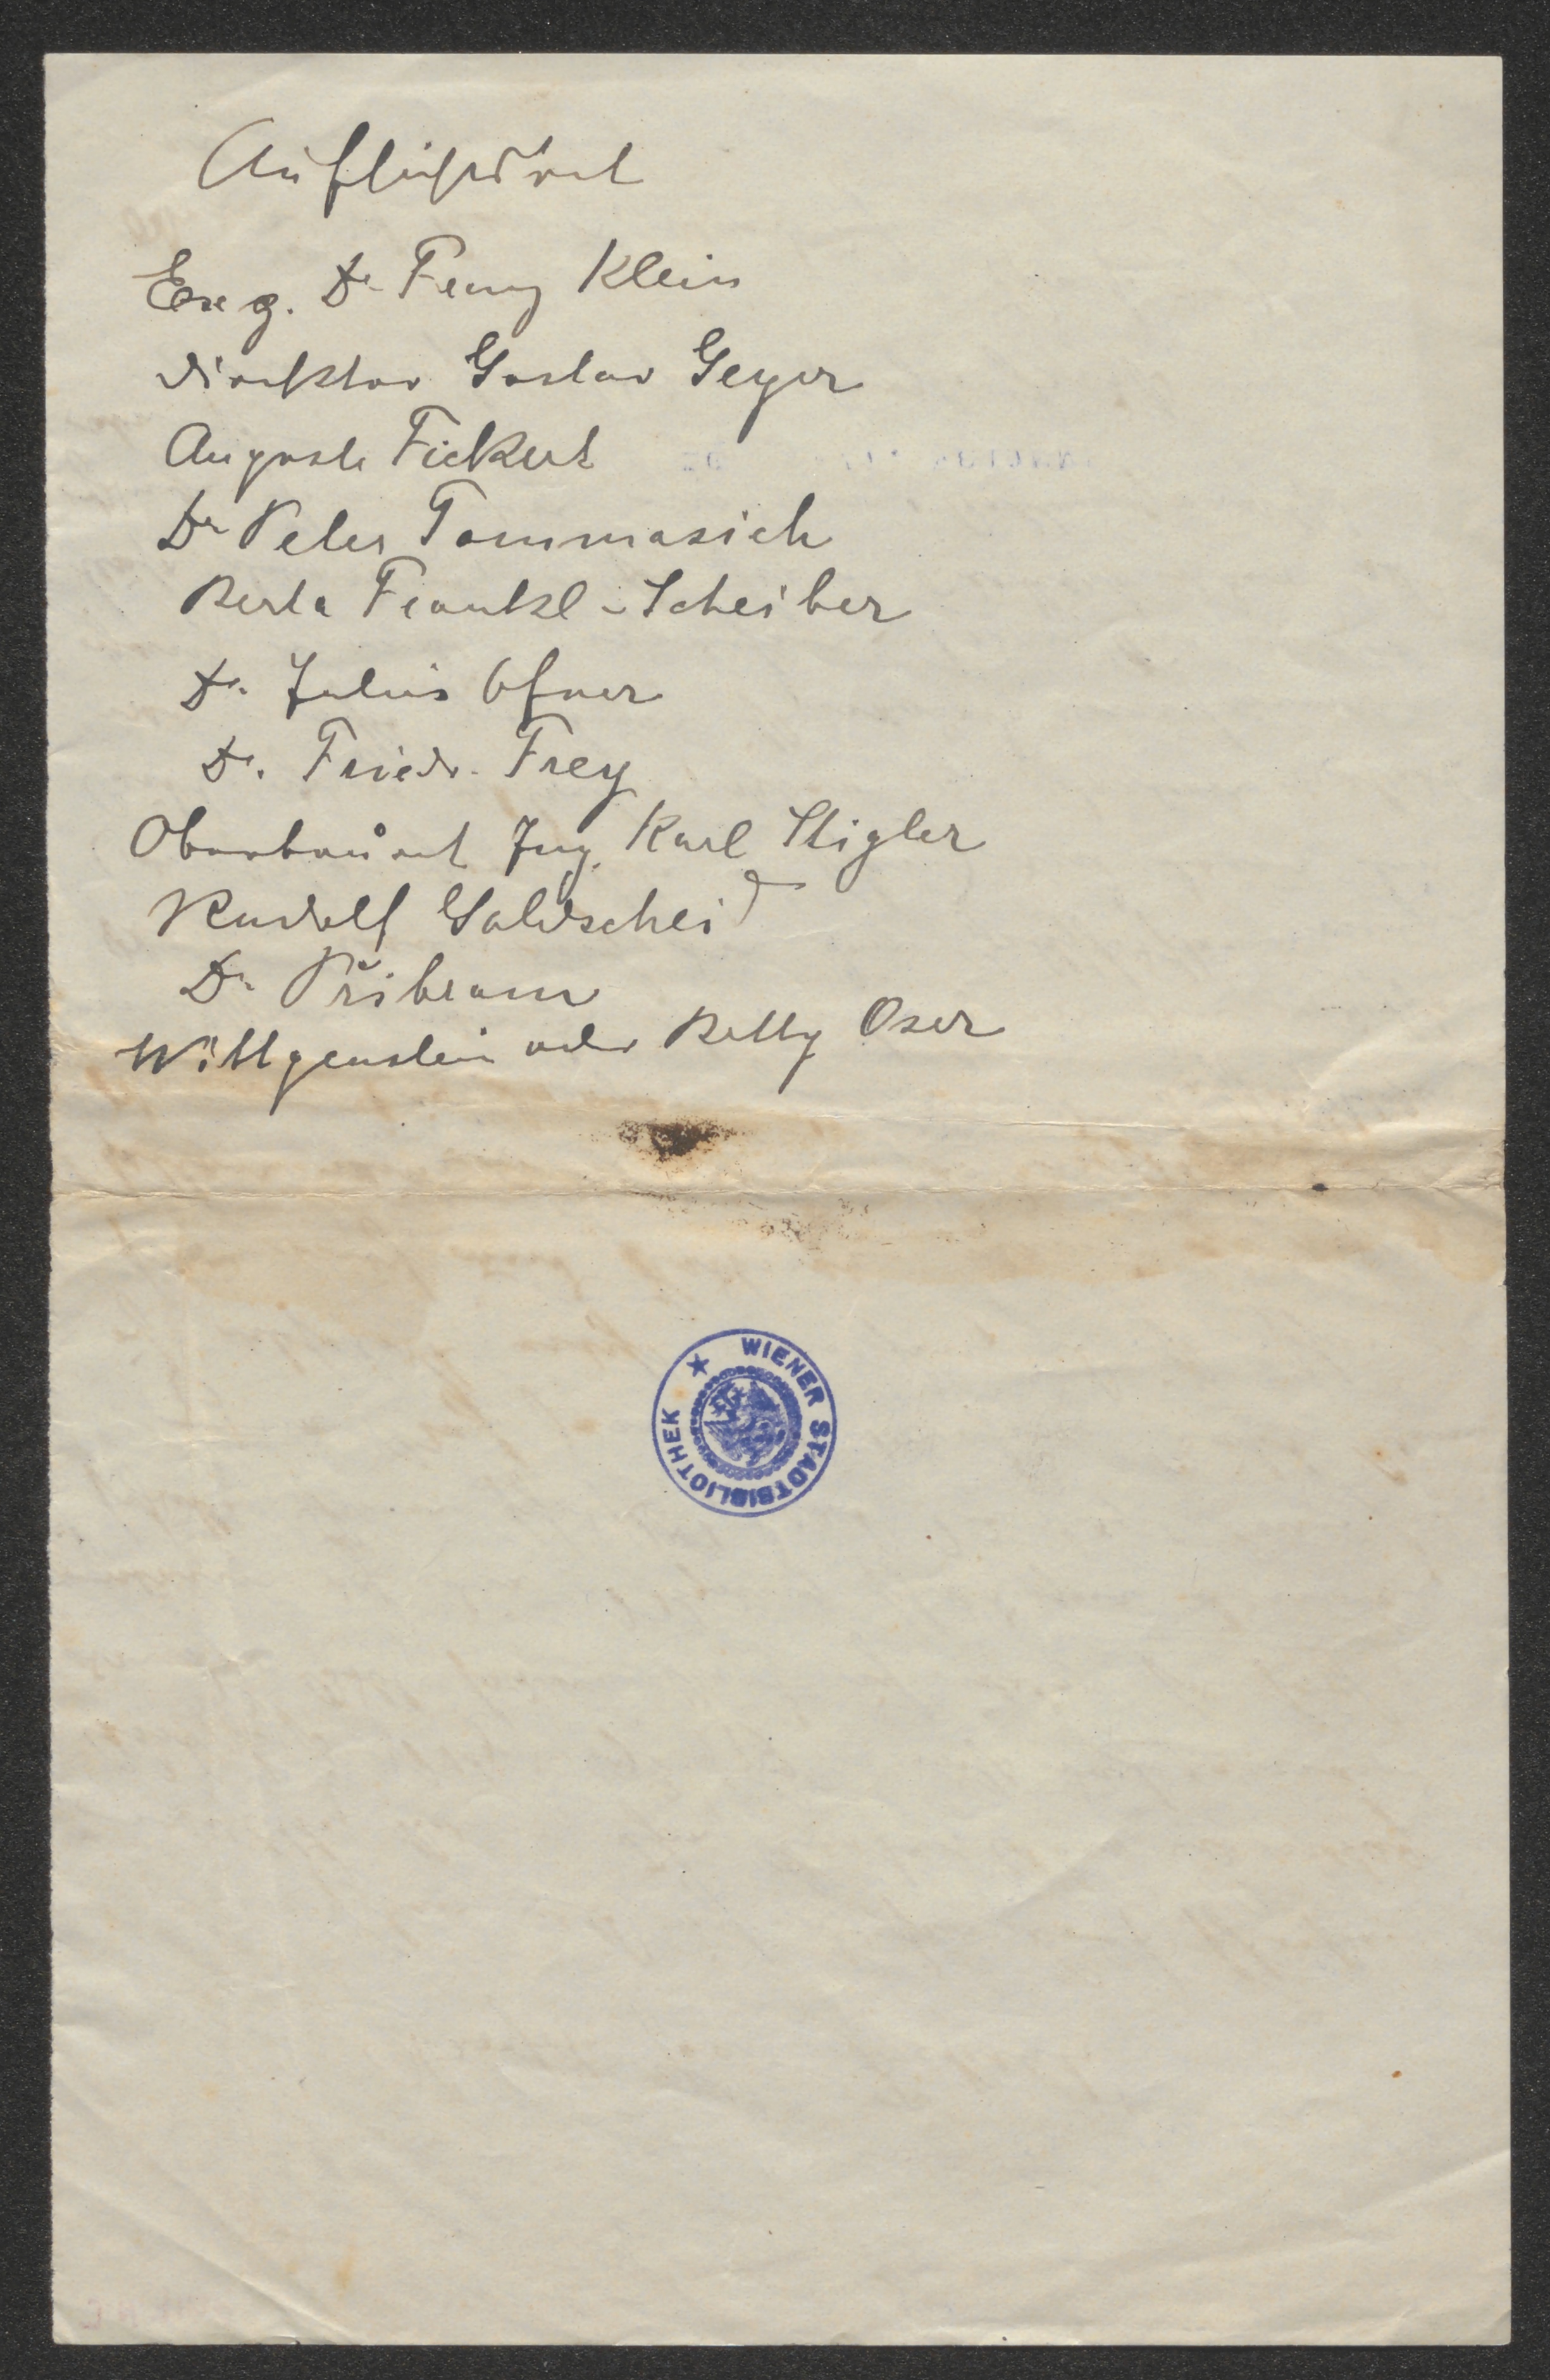 Aufsichtsrat
Exz. Dr Franz Klein
Direktor Gustav Geyer
Auguste Fickert
Dr Peter Tommasich
Berta Frankl-Scheiber
Dr. Julius Ofner
Dr. Friedr. Frey
Oberbaurat Ing. Karl Stigler
Rudolf Goldscheid
Dr Přibram
Wittgenstein oder Betty Oser
WIENER STADTBIBLIOTHEK